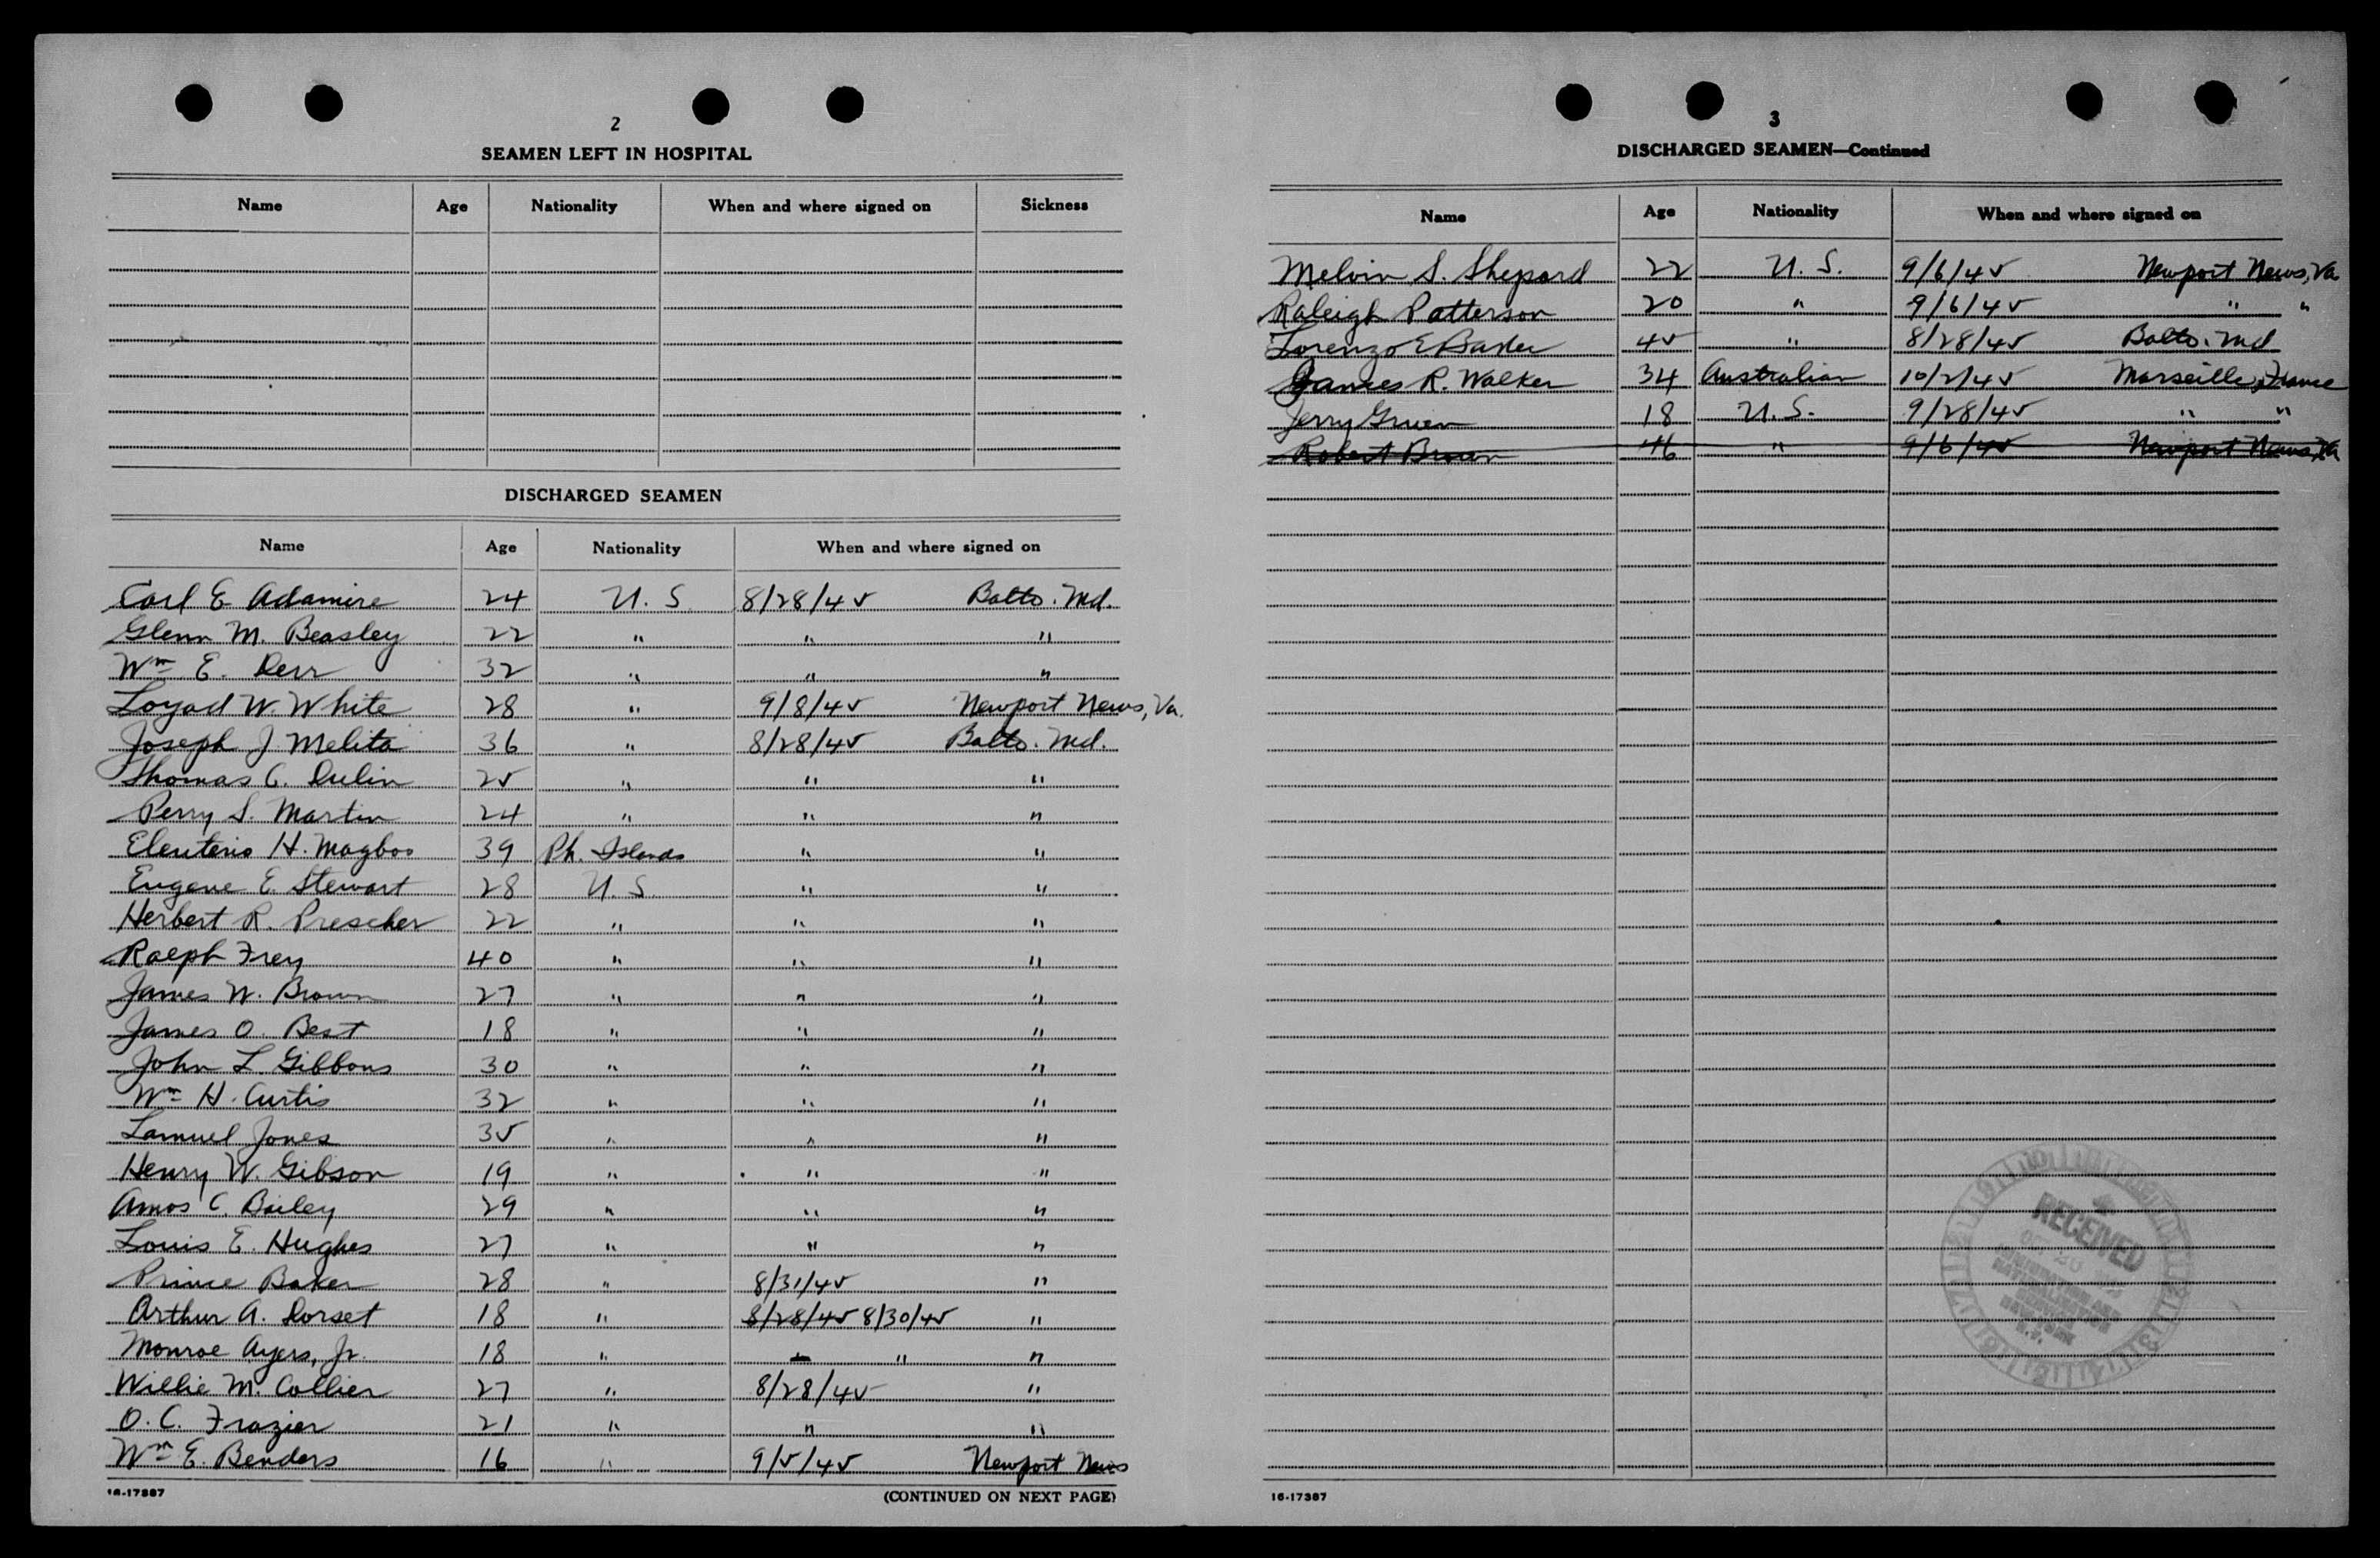 2
SEAMEN LEFT IN HOSPITAL
Name Age Nationality When and where signed on Sickness
DISCHARGED SEAMEN
Name Age Nationality When and where signed on
Carl E. Adamire 24 U. S. 8/28/45 Balto. Md.
Glenn M. Beasley 22 " " "
Wm E. Derr 32 " " "
Loyad W. White 28 " 9/8/45 Newport News, Va.
Joseph J. Melita 36 " 8/28/45 Balto. Md.
Thomas C. Dulin 25 " " "
Perry S. Martin 24 " " "
Eleuterio H. Magboo 39 Ph. Islands " "
Eugene E. Stewart 28 U. S. " "
Herbert R. Prescher 22 " " "
Ralph Frey 40 " " "
James W. Brown 27 " " "
James O. Best 18 " " "
John L. Gibbons 30 " " "
Wm H. Curtis 32 " " "
Lamuel Jones 35 " " "
Henry W. Gibson 19 " " "
Amos C. Bailey 29 " " "
Louis E. Hughes 27 " " "
Prince Baker 28 " 8/31/45 "
Arthur A. Dorset 18 " 8/28/45 8/30/45 "
Monroe Ayers, Jr. 18 " " "
Willie M. Collier 27 " 8/28/45 "
O. C. Frazier 21 " " "
Wm E. Benders 16 " 9/5/45 Newport News
16-17387 (CONTINUED ON NEXT PAGE)
3
DISCHARGED SEAMEN—Continued
Name Age Nationality When and where signed on
Melvin S. Shepard 22 U. S. 9/6/45 Newport News, Va
Raleigh Patterson 20 " 9/6/45 " "
Lorenzo E 45 " 8/28/45 Balto. Md
James R. Walker 34 Australian 10/2/45 Marseille, France
Jerry Gruen 18 U. S. 9/28/45 " "
Robert Brown 46 " 9/6/45 Newport News, Va
RECEIVED
OCT 20
IMMIGRATION AND
NATURALIZATION
NEW YORK
N.Y.
16-17387